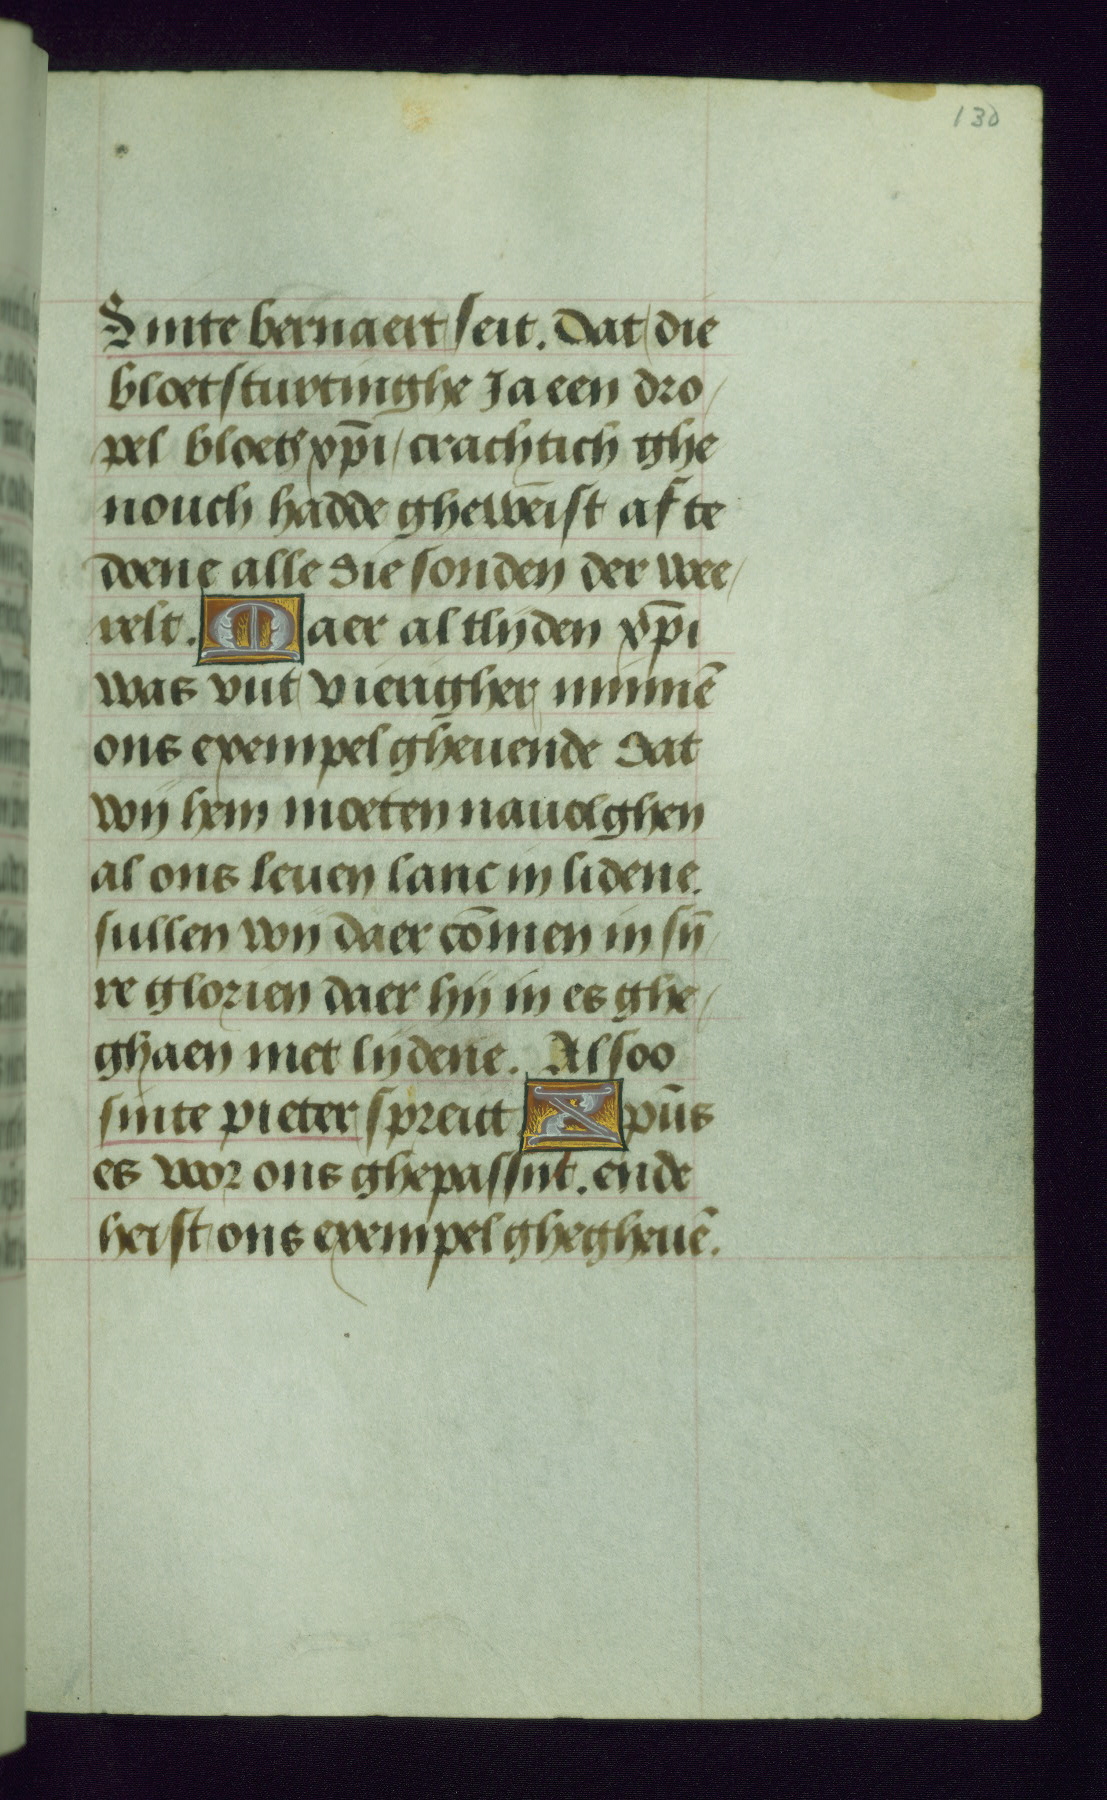 130
Sinte bernaert seit. Dat die
bloetsturtinghe Ja een dro/
pel bloets xp̄i/ crachtich ghe
nouch hadde gheweist af te
doene alle die sonden der wee/
relt. Maer al tlijden xp̄i
was vut vierigher minnē
ons exempel gheuende dat
wij hem moeten nauolghen
al ons leuen lanc in lidene.
sullen wij daer cōmen in sij̄/
re glorien daer hij in es ghe/
ghaen met lijdene. Alsoo
sinte pieter spreict Xpūs
es voor ons ghepassijt. ende
heist ons exempel ghegheuē.